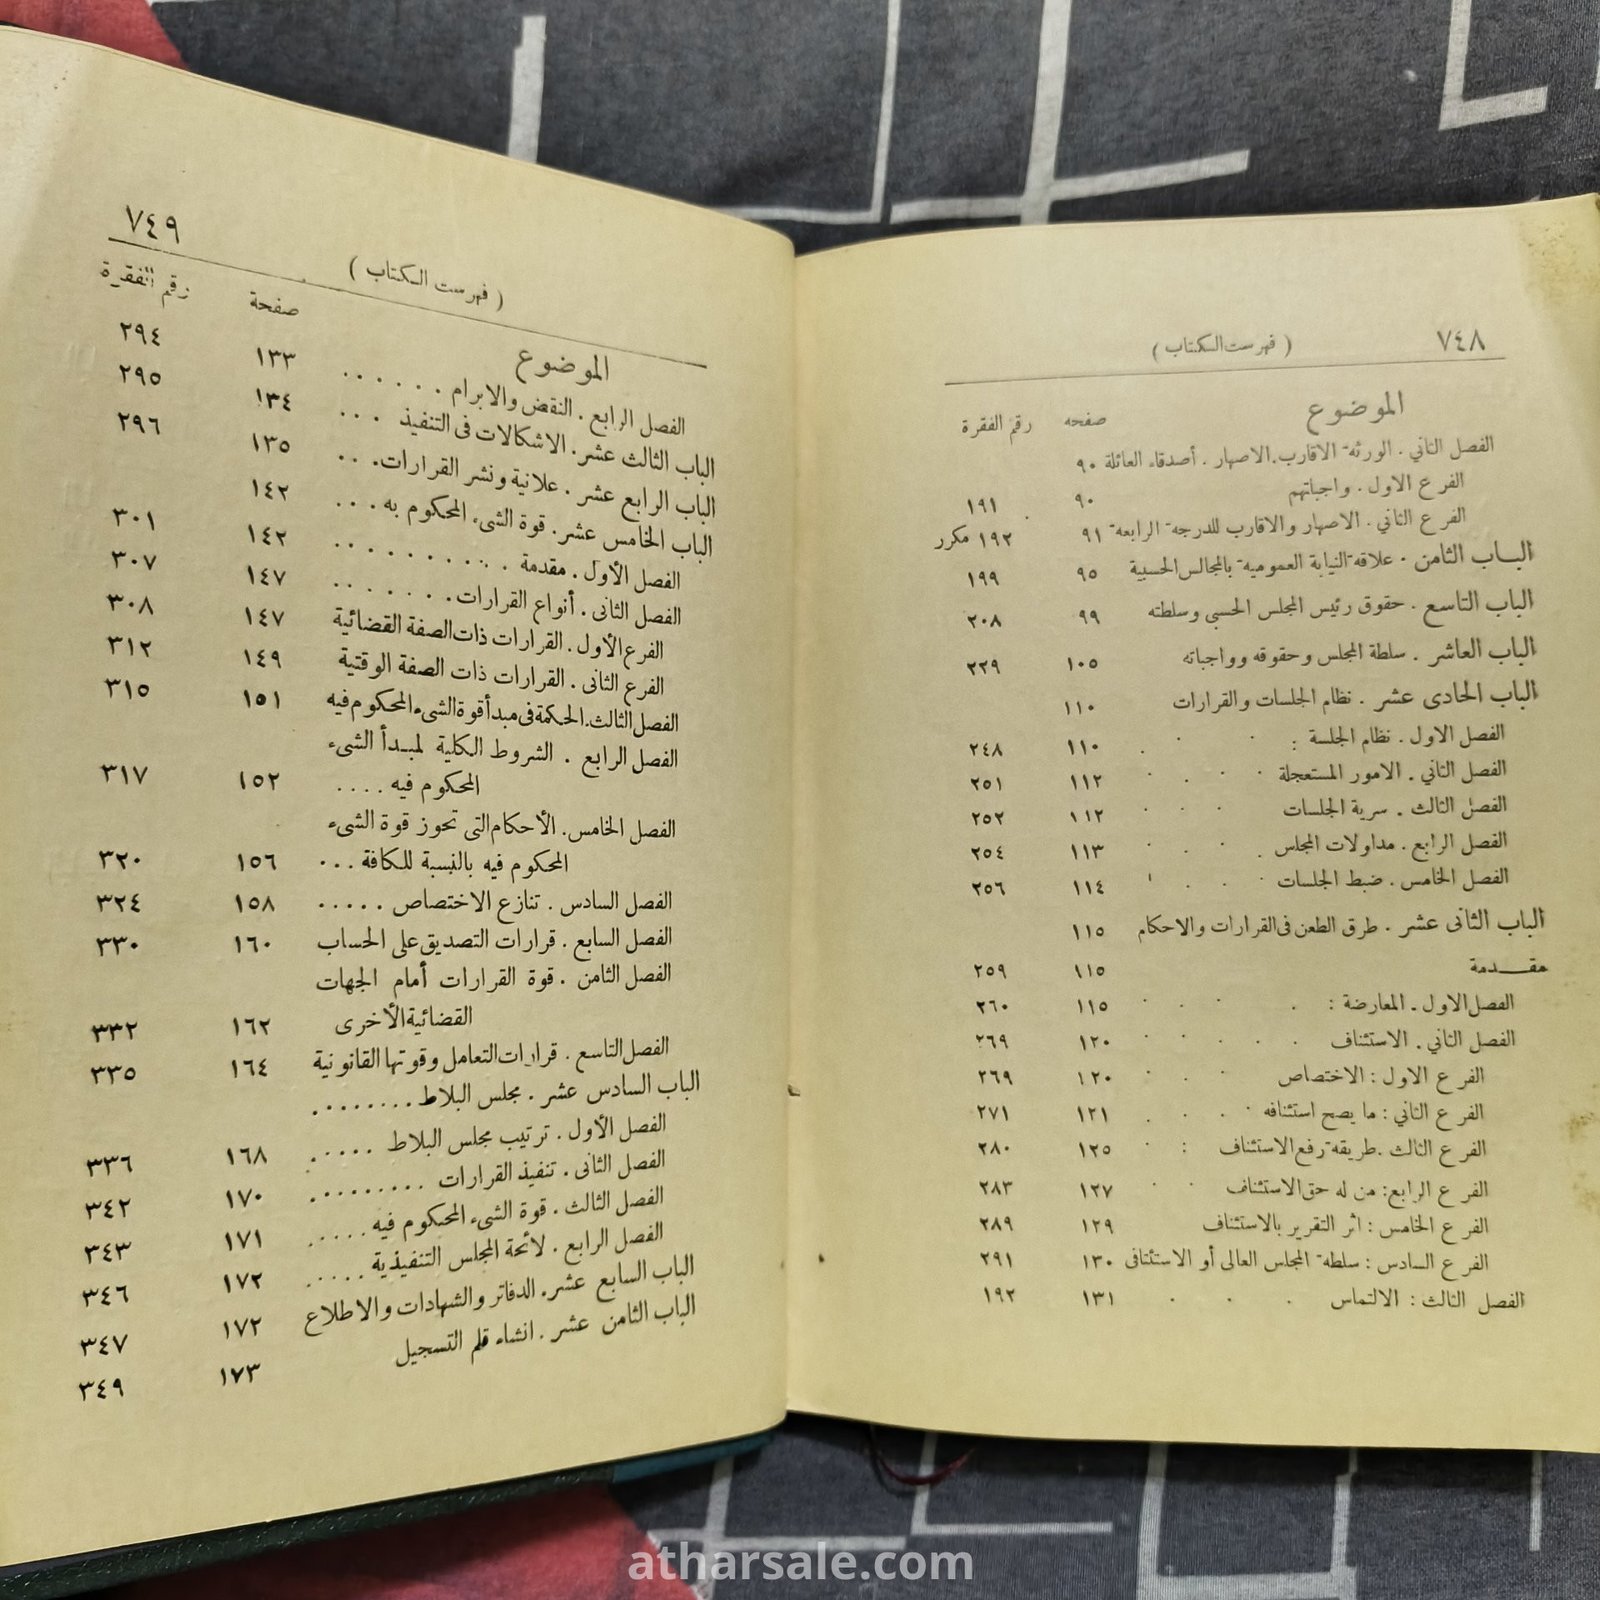 ٧٤٨ ( فهرست الكتاب )
الموضوع صفحه رقم الفقرة
الفصل الثاني . الورثة الاقارب . الاصهار . أصدقاء العائلة ٩٠
الفرع الاول . واجباتهم ٩٠ ١٩١
الفرع الثاني . الاصهار والاقارب للدرجة الرابعة ٩١ ١٩٢ مكرر
البـاب الثامن . علاقة النيابة العمومية بالمجالس الحسبية ٩٥ ١٩٩
الباب التاسع . حقوق رئيس المجلس الحسبي وسلطته ٩٩ ٢٠٨
الباب العاشر . سلطة المجلس وحقوقه وواجباته ١٠٥ ٢٢٩
الباب الحادى عشر . نظام الجلسات والقرارات ١١٠
الفصل الاول . نظام الجلسة : . . . ١١٠ ٢٤٨
الفصل الثاني . الامور المستعجلة . . . ١١٢ ٢٥١
الفصل الثالث . سرية الجلسات . . . ١١٢ ٢٥٢
الفصل الرابع . مداولات المجلس . . . ١١٣ ٢٥٤
الفصل الخامس . ضبط الجلسات . . . ١١٤ ٢٥٦
الباب الثانى عشر . طرق الطعن فى القرارات والاحكام ١١٥
مقـــدمة ١١٥ ٢٥٩
الفصل الاول . المعارضة : . . . . ١١٥ ٢٦٠
الفصل الثاني . الاستئناف . . . . . ١٢٠ ٢٦٩
الفرع الاول : الاختصاص . . . ١٢٠ ٢٦٩
الفرع الثاني : ما يصح استئنافه . . . ١٢١ ٢٧١
الفرع الثالث . طريقة رفع الاستئناف : . ١٢٥ ٢٨٠
الفرع الرابع : من له حق الاستئناف . . ١٢٧ ٢٨٣
الفرع الخامس : اثر التقرير بالاستئناف ١٢٩ ٢٨٩
الفرع السادس : سلطة المجلس العالى أو الاستئنافى ١٣٠ ٢٩١
الفصل الثالث : الالتماس . . . ١٣١ ١٩٢
( فهرست الكتاب ) ٧٤٩
الموضوع صفحة رقم الفقرة
الفصل الرابع . النقض والابرام . . . . . . ١٣٣ ٢٩٤
الباب الثالث عشر . الاشكالات فى التنفيذ . . . ١٣٤ ٢٩٥
الباب الرابع عشر . علانية ونشر القرارات . . . ١٣٥ ٢٩٦
الباب الخامس عشر . قوة الشىء المحكوم به . . . ١٤٢
الفصل الأول . مقدمة . . . . . . . . . ١٤٢ ٣٠١
الفصل الثانى . أنواع القرارات . . . . . . . ١٤٧ ٣٠٧
الفرع الأول . القرارات ذات الصفة القضائية ١٤٧ ٣٠٨
الفرع الثانى . القرارات ذات الصفة الوقتية ١٤٩ ٣١٢
الفصل الثالث . الحكمة فى مبدأ قوة الشىء المحكوم فيه ١٥١ ٣١٥
الفصل الرابع . الشروط الكلية لمبـدأ الشىء
المحكوم فيه . . . . ١٥٢ ٣١٧
الفصل الخامس . الأحكام التى تحوز قوة الشىء
المحكوم فيه بالنسبة للكافة . . . ١٥٦ ٣٢٠
الفصل السادس . تنازع الاختصاص . . . . . ١٥٨ ٣٢٤
الفصل السابع . قرارات التصديق على الحساب ١٦٠ ٣٣٠
الفصل الثامن . قوة القرارات أمام الجهات
القضائية الأخرى ١٦٢ ٣٣٢
الفصل التاسع . قرارات التعامل وقوتها القانونية ١٦٤ ٣٣٥
الباب السادس عشر . مجلس البلاط . . . . . . . .
الفصل الأول . ترتيب مجلس البلاط . . . . . ١٦٨ ٣٣٦
الفصل الثانى . تنفيذ القرارات . . . . . . . . . ١٧٠ ٣٤٢
الفصل الثالث . قوة الشىء المحكوم فيه . . . . . ١٧١ ٣٤٣
الفصل الرابع . لائحة المجلس التنفيذية . . . . . ١٧٢ ٣٤٦
الباب السابع عشر . الدفاتر والشهادات والاطلاع ١٧٢ ٣٤٧
الباب الثامن عشر . انشاء قلم التسجيل ١٧٣ ٣٤٩
atharsale.com